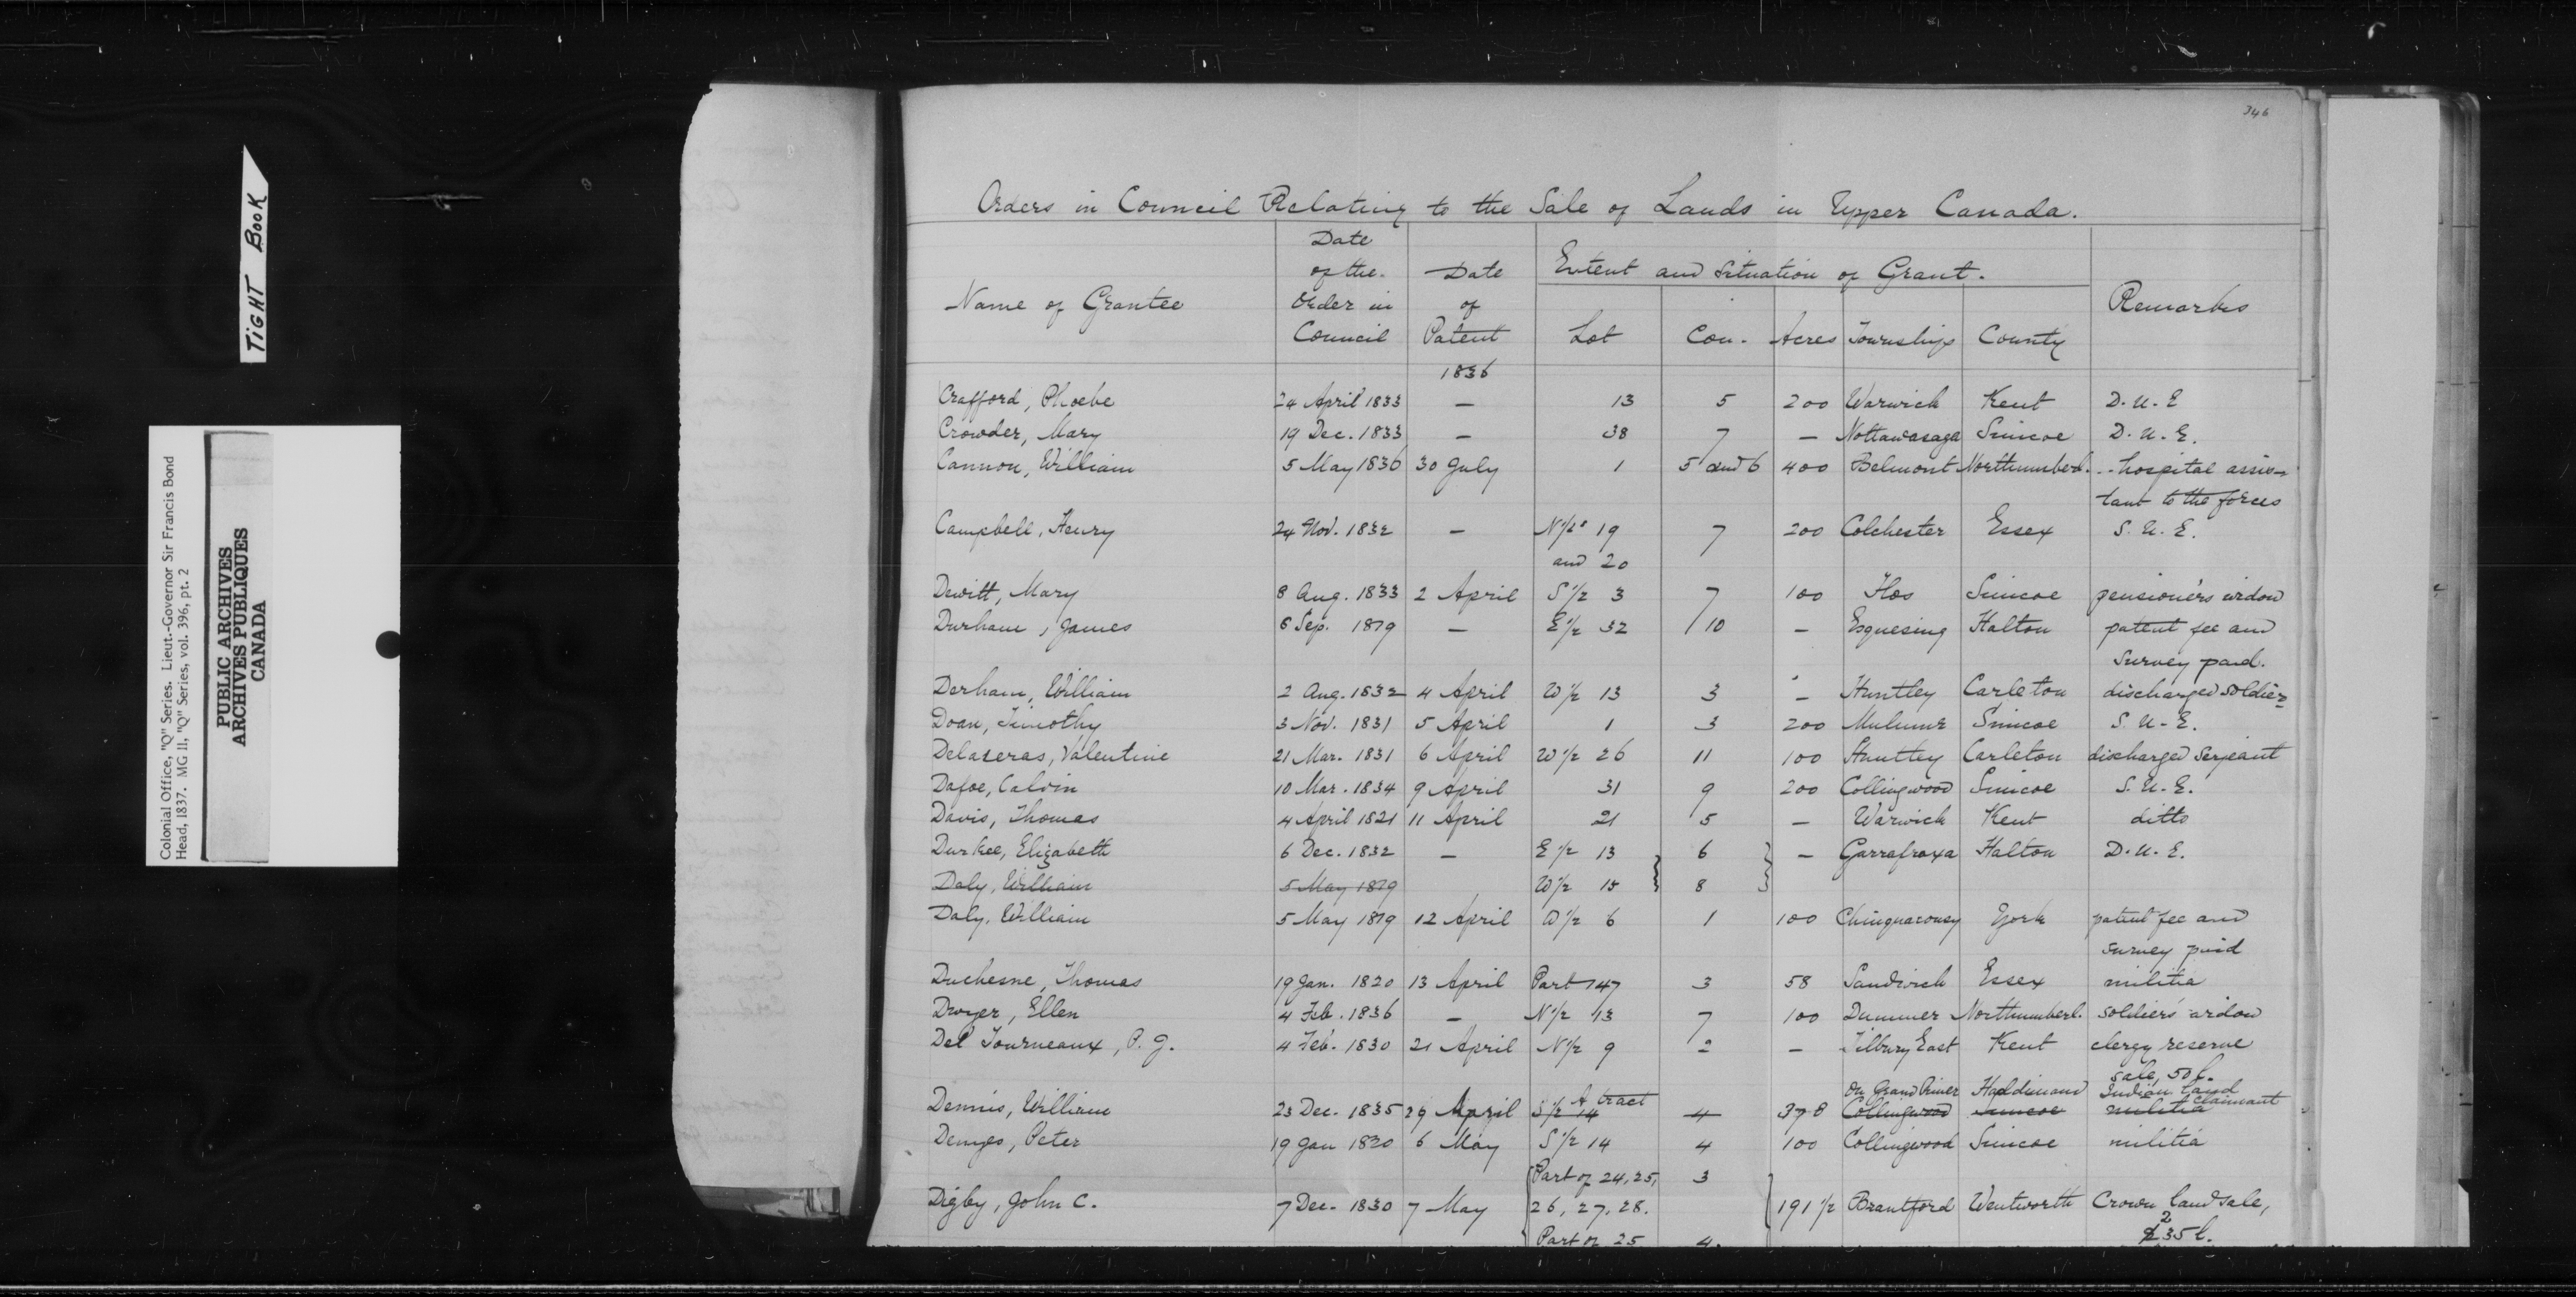 346
TIGHT BOOK
Colonial Office, "Q" Series. Lieut.-Governor Sir Francis Bond
Head, 1837. MG 11, "Q" Series, vol. 396, pt. 2
PUBLIC ARCHIVES
ARCHIVES PUBLIQUES
CANADA
Orders in Council Relating to the Sale of Lands in Upper Canada.
Name of Grantee Date of the Order in Council Date of Patent Extent and Situation of Grant. Remarks
Lot Con. Acres Township County
1836
Crafford, Phoebe 24 April 1833 — 13 5 200 Warwick Kent D.U.E
Crowder, Mary 19 Dec. 1833 — 38 7 — Nottawasaga Simcoe D.U.E.
Cannon, William 5 May 1836 30 July 1 5 and 6 400 Belmont Northumberl. hospital assis-
tant to the forces
Campbell, Henry 24 Nov. 1832 — N 1/2s 19 7 200 Colchester Essex S.U.E.
and 20
Dewitt, Mary 8 Aug. 1833 2 April S 1/2 3 7 100 Flos Simcoe pensioner's widow
Durham, James 6 Sep. 1819 — E 1/2 32 10 — Esquesing Halton patent fee and
survey paid.
Derham, William 2 Aug. 1832 4 April W 1/2 13 3 — Huntley Carleton discharged soldier
Doan, Timothy 3 Nov. 1831 5 April 1 3 200 Mulmur Simcoe S.U.E.
Delazeras, Valentine 21 Mar. 1831 6 April W 1/2 26 11 100 Huntley Carleton discharged Serjeant
Dafoe, Calvin 10 Mar. 1834 9 April 31 9 200 Collingwood Simcoe S.U.E.
Davis, Thomas 4 April 1821 11 April 21 5 — Warwick Kent ditto
Durkee, Elizabeth 6 Dec. 1832 — E 1/2 13 6 — Garrafraxa Halton D.U.E.
Daly, William 5 May 1819 W 1/2 15 8
Daly, William 5 May 1819 12 April W 1/2 6 1 100 Chinguacousy York patent fee and
survey paid
Duchesne, Thomas 19 Jan. 1820 13 April Part 147 3 58 Sandwich Essex militia
Dwyer, Ellen 4 Feb. 1836 — N 1/2 13 7 100 Dummer Northumberl. soldier's widow
Del Tourneaux, P. J. 4 Feb. 1830 21 April N 1/2 9 2 — Tilbury East Kent clergy reserve
sale, 50 l.
A tract On Grand River Haldimand Indian land claimant
Dennis, William 23 Dec. 1835 29 April S 1/2 14 4 378 Collingwood Simcoe militia
Demyes, Peter 19 Jan 1820 6 May S 1/2 14 4 100 Collingwood Simcoe militia
Part of 24, 25, 3
Digby, John C. 7 Dec. 1830 7 May 26, 27, 28. 191 1/2 Brantford Wentworth Crown land sale,
Part of 25 4. 235 l.